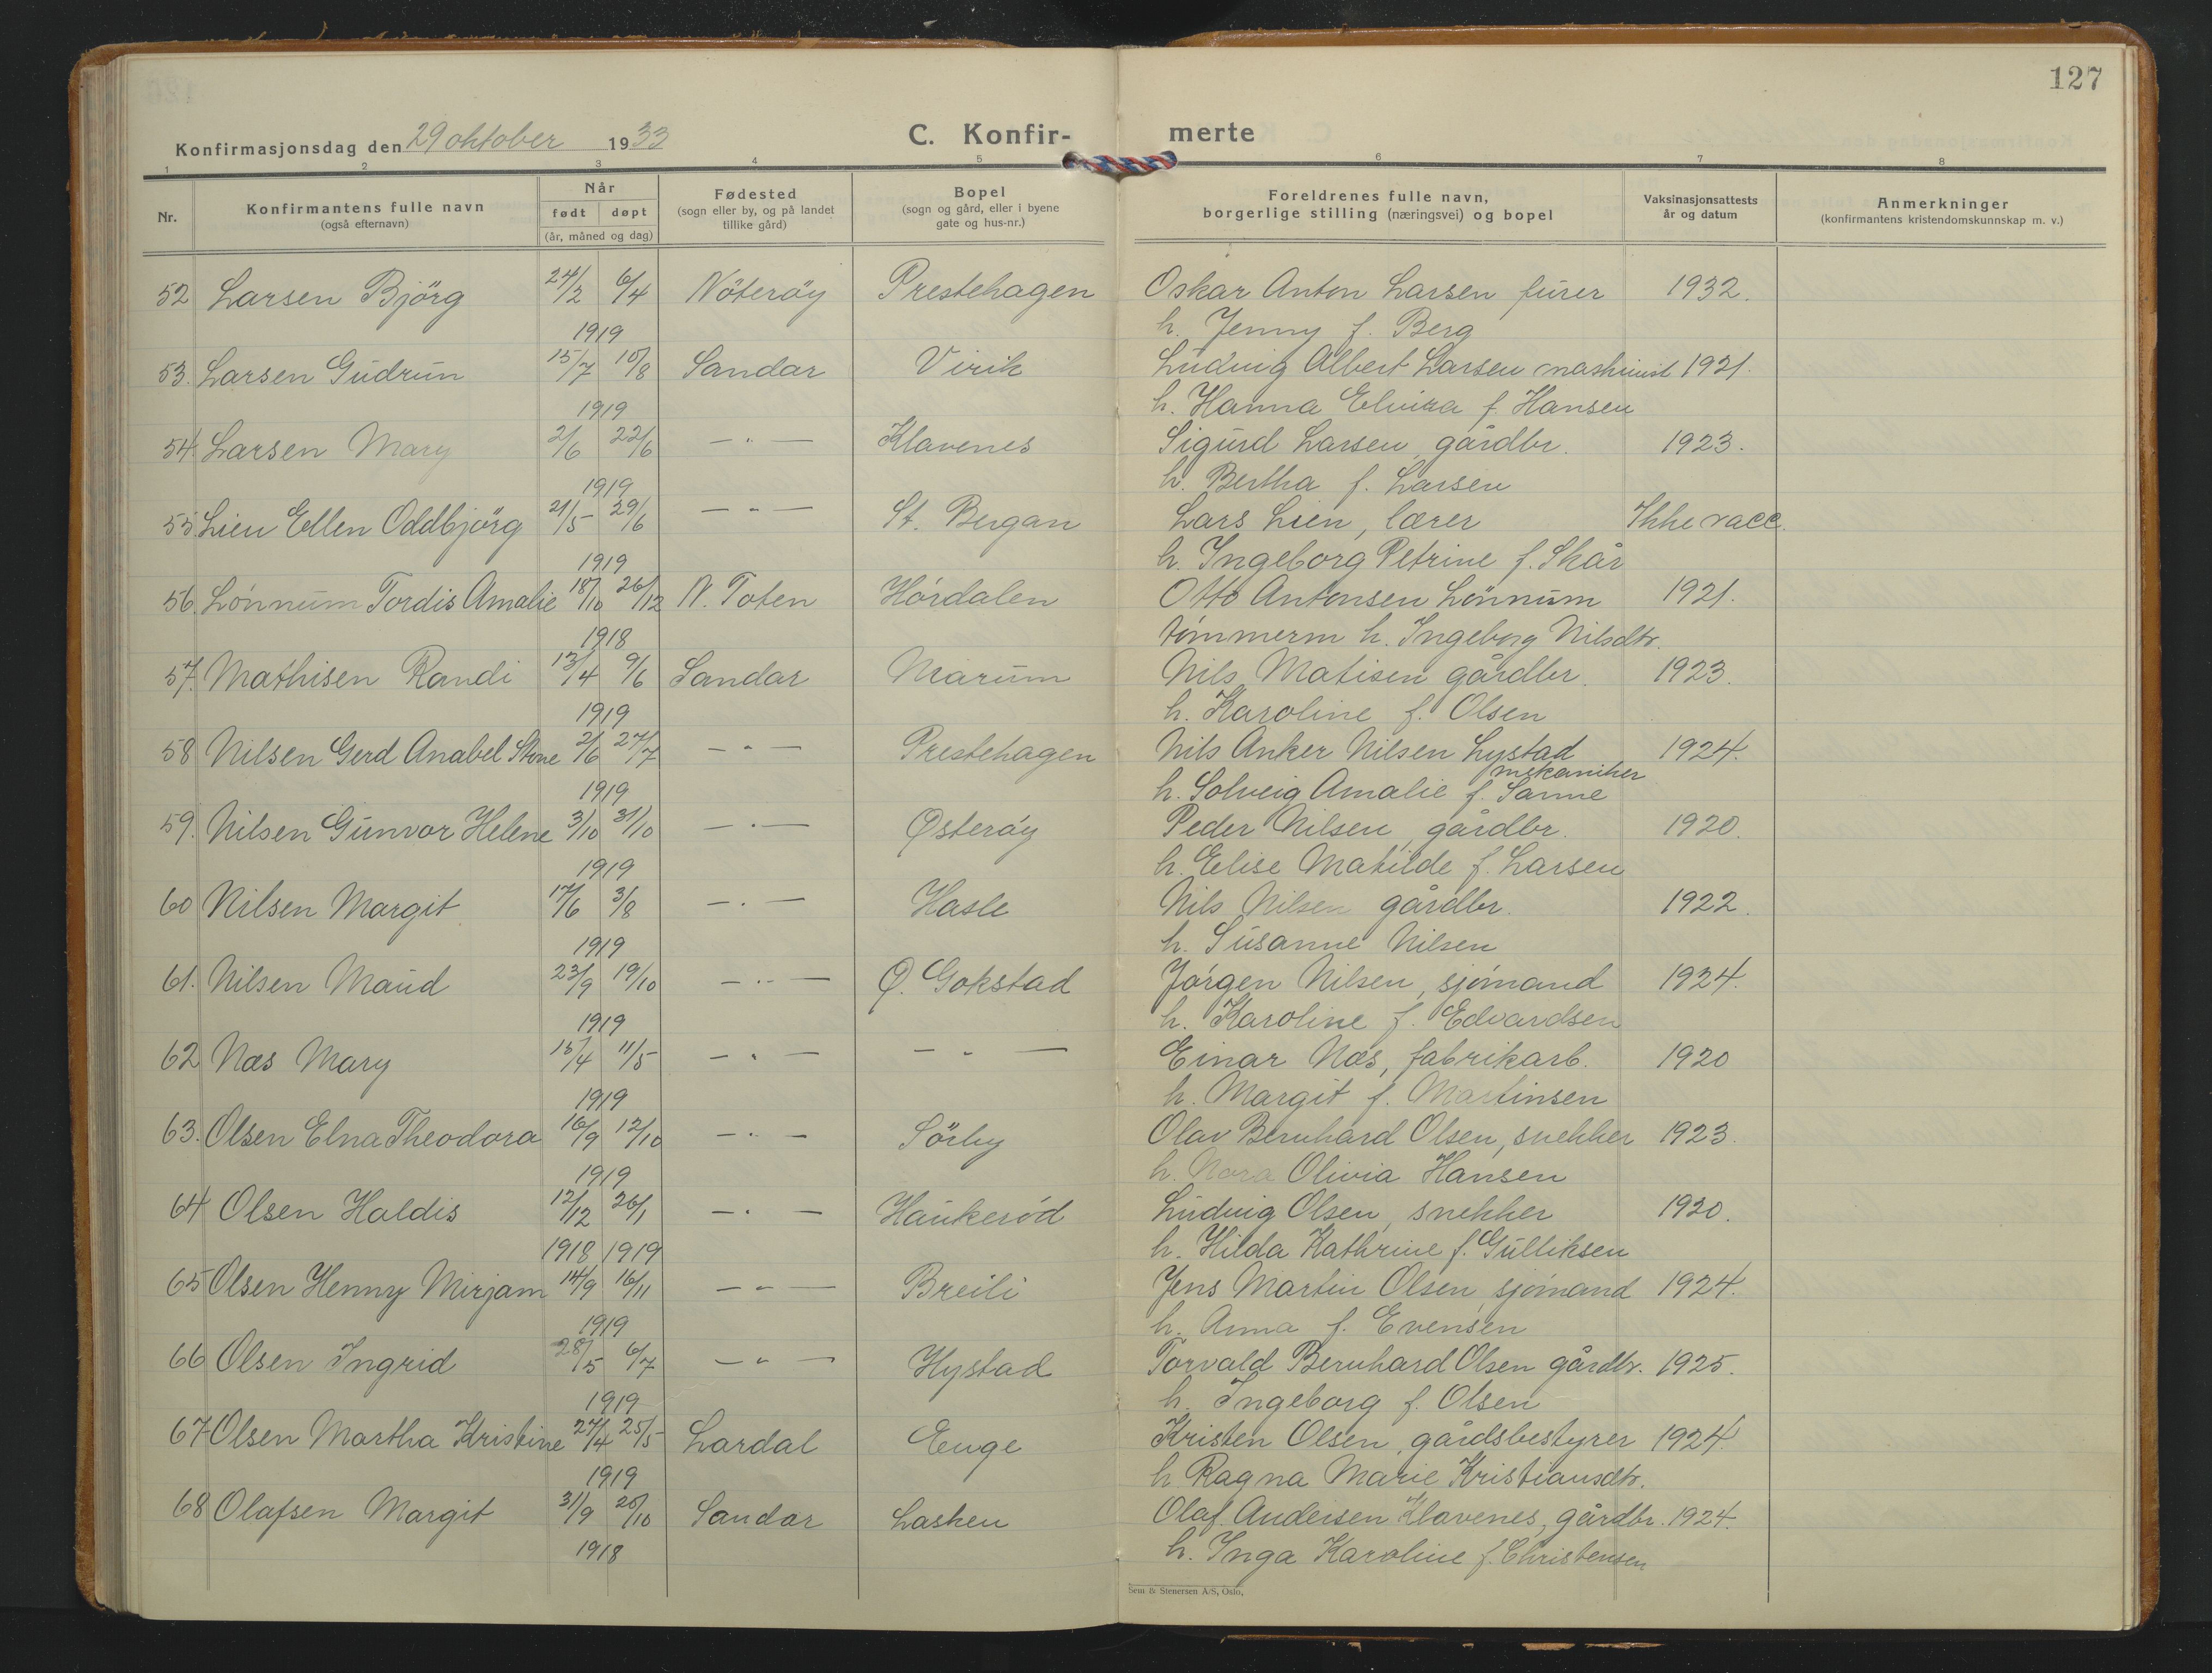 127
Konfirmasjonsdag den 29 oktober 1933
C. Konfir- merte
1 2 3 4 5 6 7 8
Nr.
Konfirmantens fulle navn
(også efternavn)
Når
født døpt
(år, måned og dag)
Fødested
(sogn eller by, og på landet
tillike gård)
Bopel
(sogn og gård, eller i byene
gate og hus-nr.)
Foreldrenes fulle navn,
borgerlige stilling (næringsvei) og bopel
Vaksinasjonsattests
år og datum
Anmerkninger
(konfirmantens kristendomskunnskap m. v.)
52 Larsen Björg 24/2 6/4 Nöteröy Prestehagen Oskar Anton Larsen furer 1932.
1919 h. Jenny f. Berg
53. Larsen Gudrun 15/7 10/8 Sandar Virik Ludvig Albert Larsen maskinist 1921.
1919 h. Hanna Elvira f. Hansen
54. Larsen Mary 2/6 22/6 — " — Klavenes Sigurd Larsen, gårdbr. 1923.
1919 h. Bertha f. Larsen
55. Lien Ellen Oddbjörg 21/5 29/6 — " — St. Bergan Lars Lien, lærer Ikke vacc.
1919 h. Ingeborg Petrine f. Skår
56. Lönnum Tordis Amalie 18/10 26/12 N. Toten Hórdalen Otto Antonsen Lönnum 1921.
1918 tómmerm h. Ingeborg Nilsdtr.
57. Mathisen Randi 13/4 9/6 Sandar Marum Nils Matisen gårdbr. 1923.
1919 h. Karoline f. Olsen
58 Nilsen Gerd Anabel Stone 2/6 27/7 — " — Prestehagen Nils Anker Nilsen Lystad 1924.
mekaniker
1919 h. Solveig Amalie f. Sanne
59. Nilsen Gunvor Helene 3/10 31/10 — " — Østeróy Peder Nilsen, gårdbr. 1920.
1919 h. Elise Matilde f. Larsen
60 Nilsen Margit 17/6 3/8 — " — Hasle Nils Nilsen gårdbr. 1922.
1919 h. Susanne Nilsen
61. Nilsen Maud 23/9 19/10 — " — Ø. Gokstad Jórgen Nilsen, sjómand 1924.
1919 h. Karoline f. Edvardsen
62 Næs Mary 15/4 11/5 — " — — " — Einar Næs, fabrikarb. 1920
1919 h. Margit f. Martinsen
63. Olsen Elna Theodora 16/9 12/10 — " — Sörby Olav Bernhard Olsen, snekker 1923.
1919 h. Nora Olivia Hansen
64 Olsen Haldis 12/12 26/1 — " — Haukeród Ludvig Olsen, snekker 1920.
1918 1919 h. Hilda Kathrine f. Gulliksen
65 Olsen Henny Mirjam 14/9 16/11 — " — Breili Jens Martin Olsen, sjómand 1924.
1919 h. Anna f. Evensen
66 Olsen Ingrid 28/5 6/7 — " — Hystad Torvald Bernhard Olsen gårdbr. 1925.
1919 h. Ingeborg f. Olsen
67 Olsen Martha Kristine 27/4 25/5 Lardal Enge Kristen Olsen, gårdsbestyrer 1924.
1919 h. Ragna Marie Kristiansdtr.
68 Olafsen Margit 31/9 20/10 Sandar Lasken Olaf Andersen Klavenes, gårdbr. 1924.
1918 h. Inga Karoline f. Christensen
Sem & Stenersen A/S, Oslo.